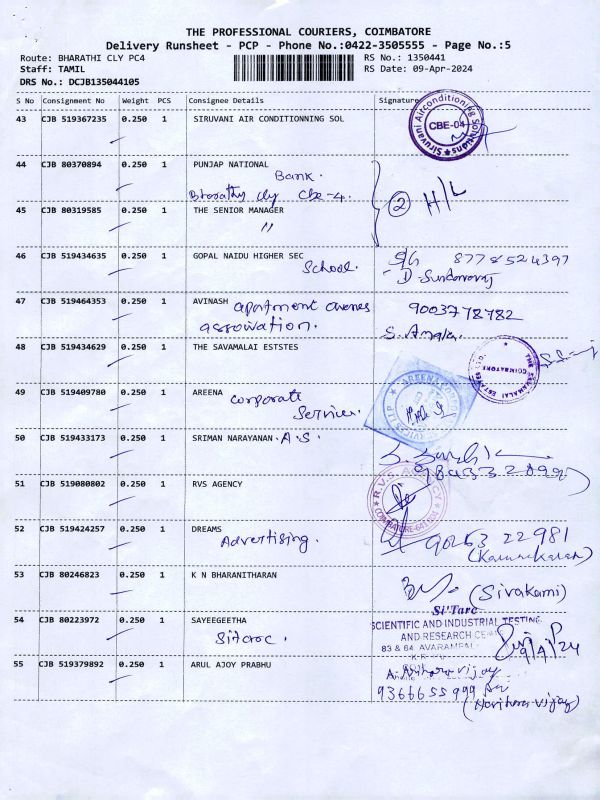 THE PROFESSIONAL COURIERS, COIMBATORE
Delivery Runsheet - PCP - Phone No.:0422-3505555 - Page No.:5
Route: BHARATHI CLY PC4
Staff: TAMIL
DRS No.: DCJB135044105
RS No.: 1350441
RS Date: 09-Apr-2024
S No Consignment No Weight PCS Consignee Details Signature
43 CJB 519367235 0.250 1 SIRUVANI AIR CONDITIONNING SOL
Siruvani Airconditioning Solutions
CBE-04
44 CJB 80370894 0.250 1 PUNJAP NATIONAL
Bank.
Bharathy cly Cbe-4.
2 H/L
45 CJB 80319585 0.250 1 THE SENIOR MANAGER
"
46 CJB 519434635 0.250 1 GOPAL NAIDU HIGHER SEC
School.
47 CJB 519464353 0.250 1 AVINASH apartment owners
association.
9003778782
48 CJB 519434629 0.250 1 THE SAVAMALAI ESTSTES
THE SAVAMALAI ESTATES
COIMBATORE
49 CJB 519409780 0.250 1 AREENA Corporate
Service.
50 CJB 519433173 0.250 1 SRIMAN NARAYANAN. A.S.
51 CJB 519080802 0.250 1 RVS AGENCY
R.V.S. AGENCY
52 CJB 519424257 0.250 1 DREAMS
Advertising.
90263 22981
(Karunakaran)
53 CJB 80246823 0.250 1 K N BHARANITHARAN
(Sivakami)
54 CJB 80223972 0.250 1 SAYEEGEETHA
Sitarc.
Si'Tarc
SCIENTIFIC AND INDUSTRIAL TESTING
AND RESEARCH CE
83 & 64, AVARAMPAL
9/4/24
55 CJB 519379892 0.250 1 ARUL AJOY PRABHU
A. Harihara vijay
9366655999
(Harihara vijay)